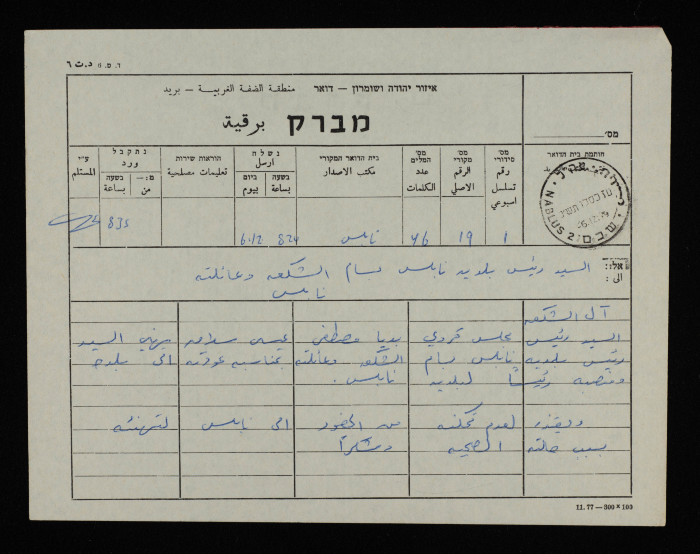 ד. ס. 11 د.ت ٦
איזור יהודה ושומרון — דואר منطقة الضفة الغربية — بريد
מברק برقية
מס'
חותמת בית הדואר
מס' סידורי رقم تسلسل اسبوعي
מס' מקורי الرقم الاصلي
מס' המלים عدد الكلمات
בית הדואר המקורי مكتب الاصدار
נשלח ارسل
בשעה بساعة
ביום بيوم
הוראות שירות تعليمات مصلحية
נתקבל ورد
בשעה بساعة
מ:— من
ע"י المستلم
NABLUS 2
1 19 46 نابلس 824 6.12 835
אל: الى: السيد رئيس بلدية نابلس بسام الشكعه وعائلته
نابلس
آل الشكعه
السيد رئيس مجلس قروي بديا مصطفى عيسى سلامه يهنئ السيد
رئيس بلدية نابلس بسام الشكعه وعائلته بمناسبة عودته الى بلده
وتنصيبه رئيساً لبلدية نابلس.
ويعتذر لعدم تمكنه من الحضور الى نابلس لتهنئته
بسبب حالته الصحيه وشكراً
11.77 — 300 × 100